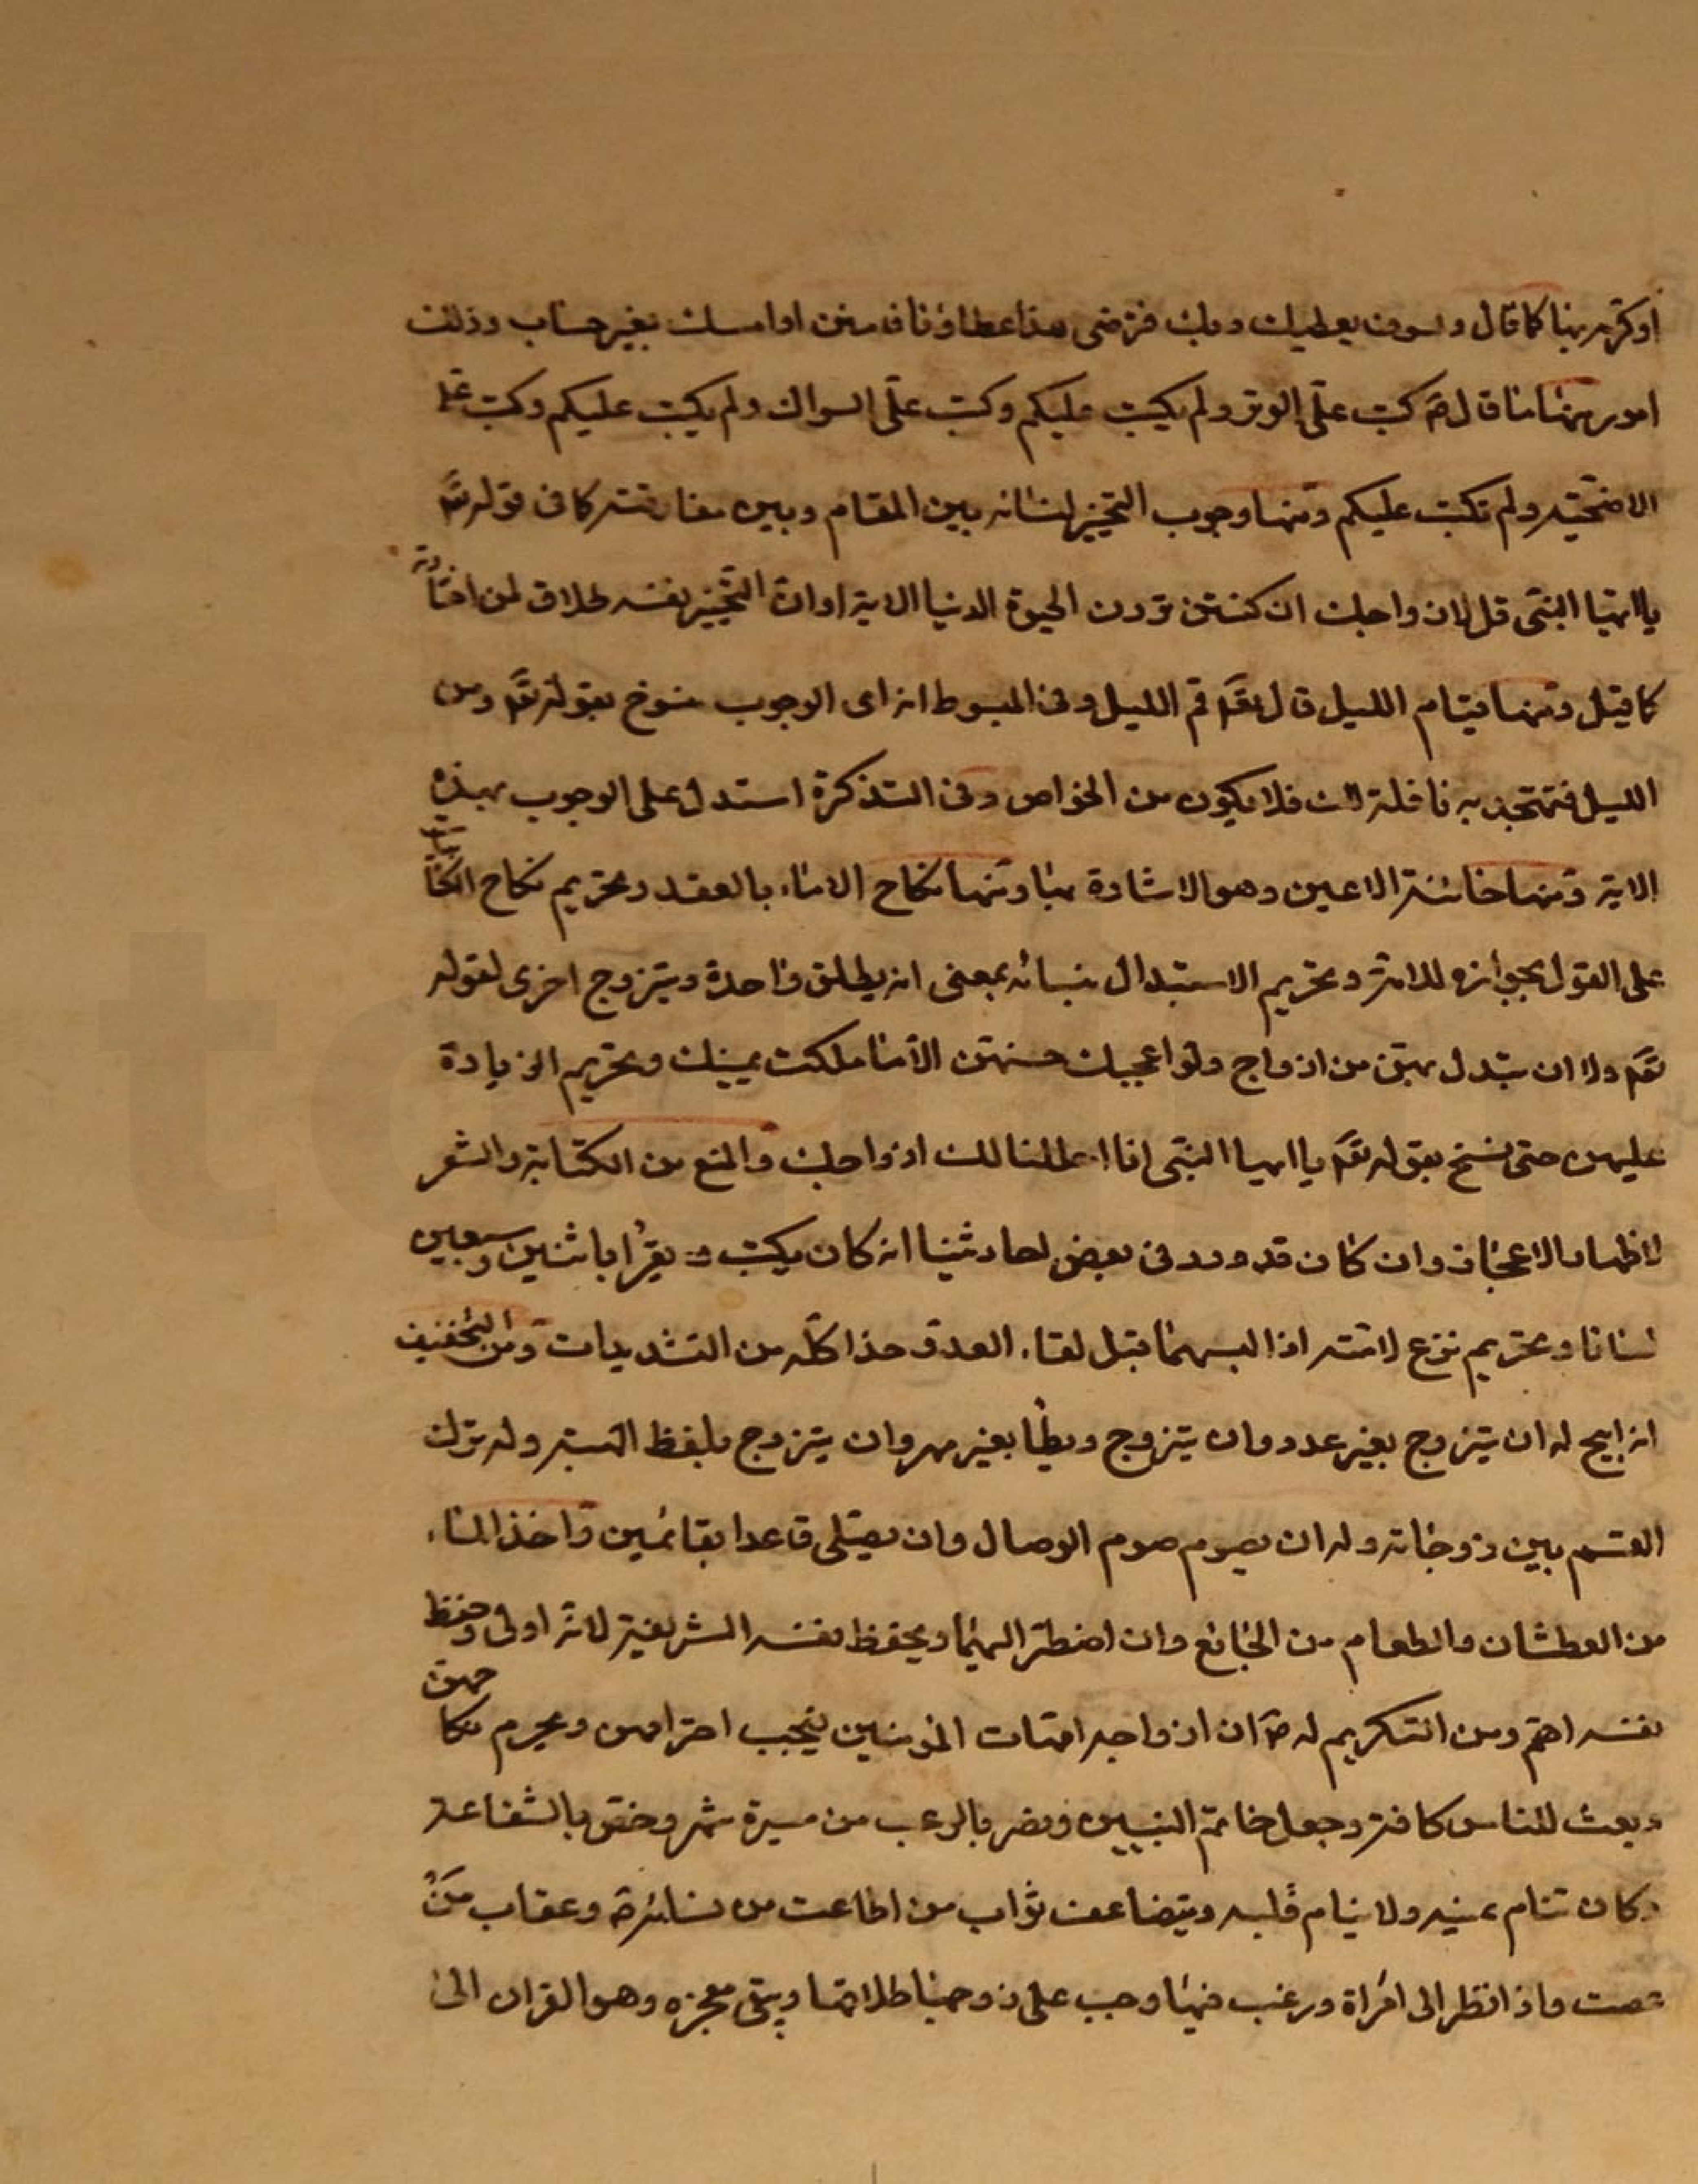 او كرم بها كما قال ولسوف يعطيك ربك فترضى هذا عطاؤنا فامنن او امسك بغير حساب وذلك
امور منها ما قال ص كتب علىّ الوتر ولم يكتب عليكم وكتب علىّ السواك ولم يكتب عليكم وكتب علىّ
الاضحيّة ولم تكتب عليكم ومنها وجوب التخيير لنسائه بين المقام وبين مفارقته كما فى قوله تعَ
يا ايها النبى قل لازواجك ان كنتن تردن الحيوة الدنيا الاية او ان التخيير نفسه طلاق لمن اختارته
كما قيل ومنها قيام الليل قال تعَ قم الليل وفى المبسوط انه اى الوجوب منسوخ بقوله تعَ ومن
الليل فتهجد به نافلة لك فلا يكون من الخواص وفى التذكرة استدل على الوجوب بهذه
الاية ومنها خائنة الاعين وهو الاشارة بها ومنها نكاح الاماء بالعقد وتحريم نكاح الكتابيات
على القول بجوازه للامة وتحريم الاستبدال بنسائه بمعنى انه يطلق واحدة ويتزوج اخرى لقوله
تعَ ولا ان تبدل بهن من ازواج ولو اعجبك حسنهن الا ما ملكت يمينك وتحريم الزيادة
عليهن حتى نسخ بقوله تعَ يا ايها النبى انا احللنا لك ازواجك والمنع من الكتابة والشعر
لاظهار الاعجاز وان كان قد ورد فى بعض احاديثنا انه كان يكتب و يقرأ باثنين وسبعين
لسانا وتحريم نزع لامته اذا لبسها قبل لقاء العدو هذا كله من التشديدات ومن التخفيف
انه ابيح له ان يتزوج بغير عدد وان يتزوج ويطأ بغير مهر وان يتزوج بلفظ الهبة وله ترك
القسم بين زوجاته وله ان يصوم صوم الوصال وان يصلى قاعدا بقائمين واخذ الماء
من العطشان والطعام من الجائع وان اضطر اليهما ويحفظ نفسه الشريفة لانه اولى وحفظ
نفسه اهم ومن التكريم له ص ان ازواجه امهات المؤمنين فيجب احترامهن ويحرم نكاحهن
وبعث للناس كافة وجعل خاتم النبيين ونصر بالرعب من مسيرة شهر وخص بالشفاعة
وكان تنام عينه ولا ينام قلبه ويتضاعف ثواب من اطاعت من نسائه وعقاب من
عصت واذا نظر الى امراة ورغب فيها وجب على زوجها طلاقها ويبقى معجزه وهو القران الى